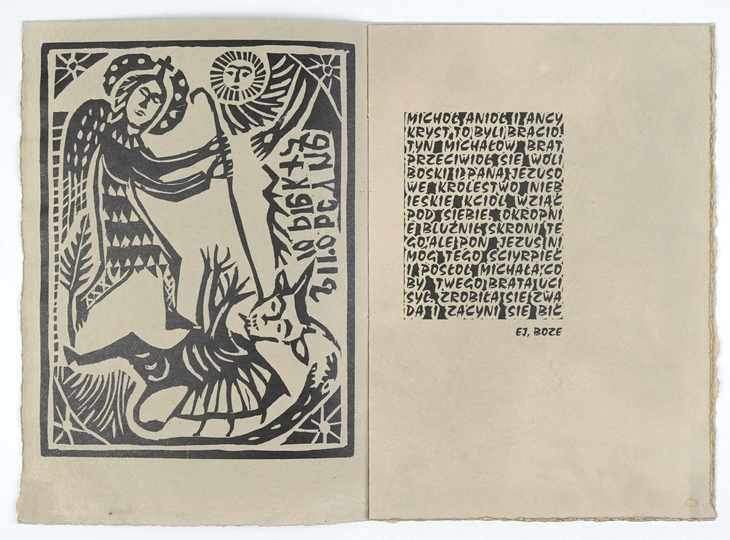 MICHOŁ ANIOŁ I ANCY
KRYST TO BYLI BRACIO
TYN MICHAŁÓW BRAT
PRZECIWIOŁ SIE WOLI
BOSKI I PANA JEZUSO
WE KRÓLESTWO NIEB
IESKIE KCIOŁ WZIĄĆ
POD SIEBIE OKROPNI
E BLUŹNIŁ SKRONI TE
GO ALE PON JEZUS NI
MÓG TEGO ŚCIYRPIEĆ
I POSŁOŁ MICHAŁA CO
BY TWEGO BRATA UCI
SYŁ. ZROBIŁA SIE ZWA
DA I ZACYNI SIE BIĆ
EJ, BOZE